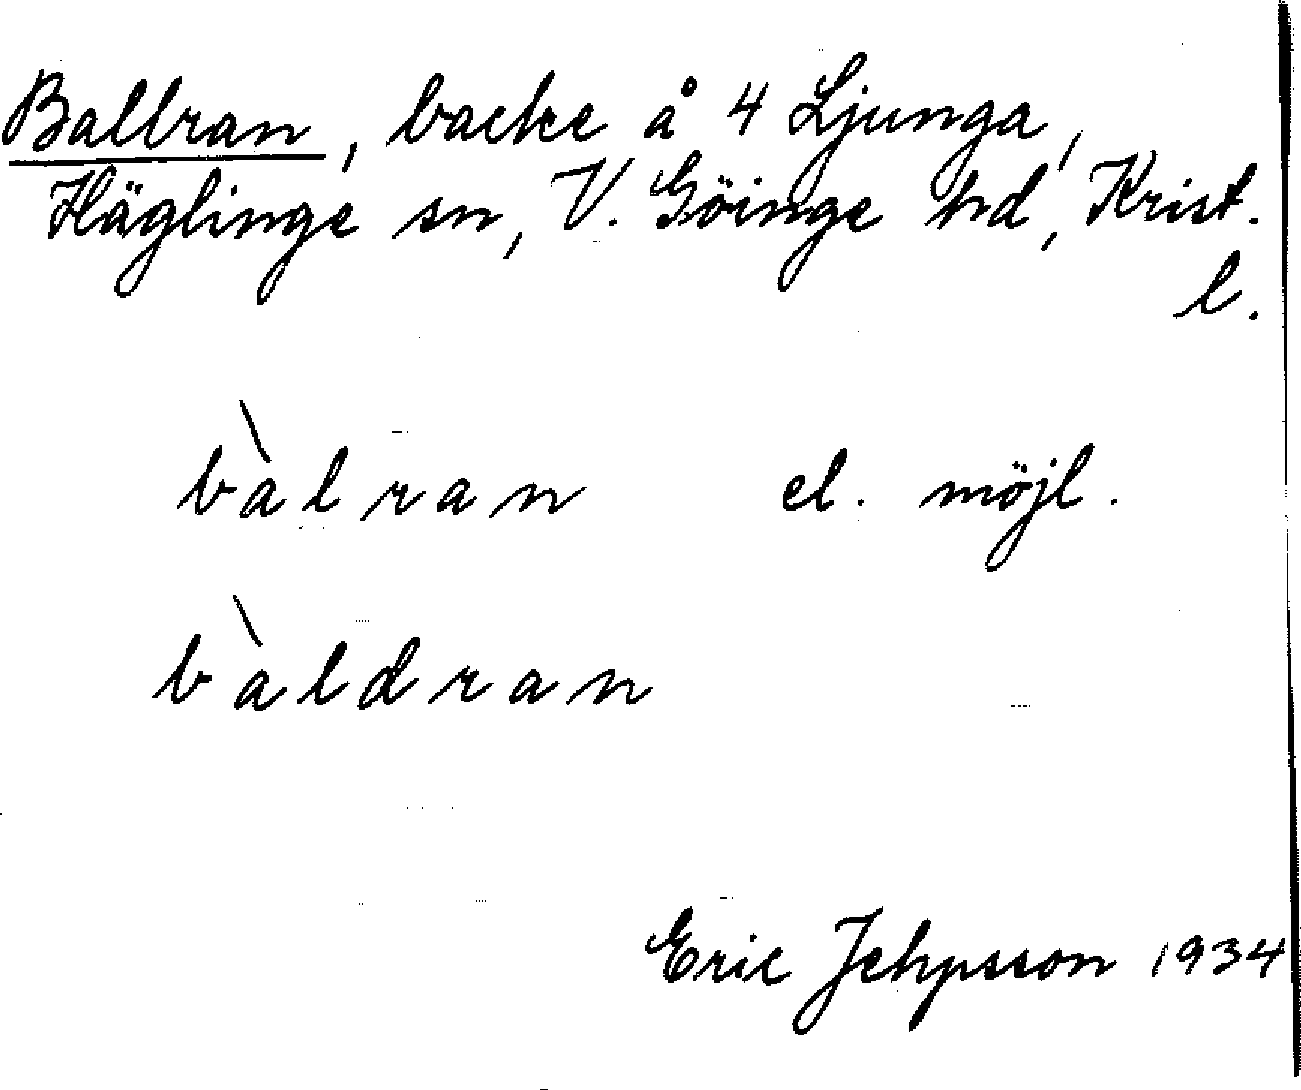 Ballran, backe å 4 Ljunga,
Häglinge sn, V. Göinge hd, Krist.
l.
bàlran el. möjl.
bàldran
Eric Jehpsson 1934